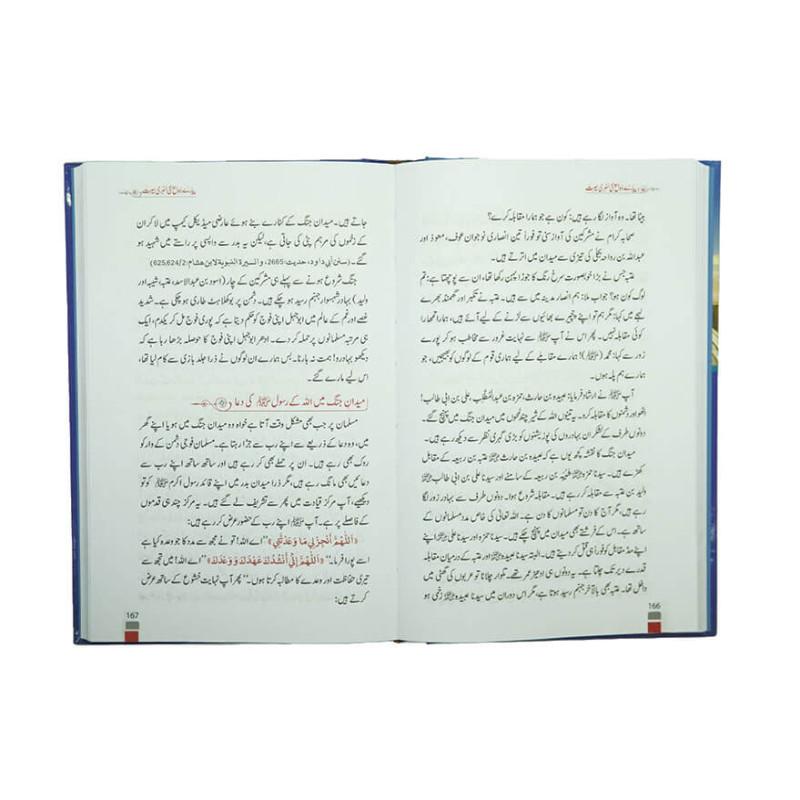 بیٹا تھا۔ وہ آواز لگا رہے ہیں: کون ہے جو ہمارا مقابلہ کرے؟
صحابہ کرام نے مشرکین کی آواز سنی تو فوراً تین انصاری نوجوان عوف، معوذ اور
عبداللہ بن رواحہ بجلی کی تیزی سے میدان میں اترتے ہیں۔
عتبہ جس نے بڑا خوبصورت سرخ رنگ کا جوڑا پہن رکھا تھا، ان سے پوچھتا ہے: تم
لوگ کون ہو؟ جواب ملا: ہم انصار مدینہ میں سے ہیں۔ عتبہ نے تکبر اور گھمنڈ بھرے
لہجے میں کہا: مگر ہم تو اپنے چچیرے بھائیوں سے لڑنے کے لیے آئے ہیں، ہمارا تمھارا
کوئی مقابلہ نہیں۔ پھر اس نے آپ ﷺ سے نہایت غرور سے مخاطب ہو کر پورے
زور سے کہا: محمد (ﷺ)! ہمارے مقابلے کے لیے ہماری قوم کے لوگوں کو بھیجیں، جو
ہمارے ہم پلہ ہوں۔
آپ ﷺ نے ارشاد فرمایا: عبیدہ بن حارث، حمزہ بن عبدالمطلب، علی بن ابی طالب!
اٹھو اور دشمنوں کا مقابلہ کرو۔ یہ تینوں اللہ کے شیر چند لمحوں میں میدان جنگ میں پہنچ گئے۔
دونوں طرف کے لشکر ان بہادروں کی پوزیشنوں کو بڑی گہری نظر سے دیکھ رہے ہیں۔
میدان جنگ کا نقشہ کچھ یوں ہے کہ عبیدہ بن حارث عتبہ بن ربیعہ کے مقابل
کھڑے ہیں۔ سیدنا حمزہ شیبہ بن ربیعہ کے سامنے اور سیدنا علی بن ابی طالب
ولید بن عتبہ سے مقابلہ کر رہے ہیں۔ مقابلہ شروع ہوا۔ دونوں طرف سے بہادر زور لگا
رہے ہیں، مگر آج کا دن تو مسلمانوں کا دن ہے۔ اللہ تعالیٰ کی خاص مدد مسلمانوں کے
ساتھ ہے۔ اس کے فرشتے بھی میدان میں پہنچ چکے ہیں۔ سیدنا حمزہ اور سیدنا علی
اپنے مد مقابل کو فوراً ہی قتل کر دیتے ہیں۔ البتہ سیدنا عبیدہ اور عتبہ کے درمیان مقابلہ
قدرے دیر تک چلتا ہے۔ یہ دونوں ہی ادھیڑ عمر تھے۔ تلوار چلانا تو عربوں کی گھٹی میں
داخل تھا۔ عتبہ بھی بالآخر جہنم رسید ہوتا ہے، مگر اس دوران میں سیدنا عبیدہ زخمی ہو
166
جاتے ہیں۔ میدان جنگ کے کنارے بنے ہوئے عارضی میڈیکل کیمپ میں لا کر ان
کے زخموں کی مرہم پٹی کی جاتی ہے، لیکن یہ بدر سے واپسی پر راستے میں شہید ہو
گئے۔ (سنن أبي داود، حدیث: 2665، والسيرة النبوية لابن هشام: 625,624/2)
جنگ شروع ہونے سے پہلے ہی مشرکین کے چار (اسود بن عبدالاسد، عتبہ، شیبہ اور
ولید) بہادر شہسوار جہنم رسید ہو چکے ہیں۔ دشمن پر بوکھلاہٹ طاری ہو چکی ہے۔ شدید
غصے اور غم کے عالم میں ابوجہل اپنی فوج کو حکم دیتا ہے کہ پوری فوج مل کر یکدم، ایک
ہی مرتبہ مسلمانوں پر حملہ کر دے۔ ادھر ابوجہل اپنی فوج کا حوصلہ بڑھا رہا ہے کہ
دیکھو بہادرو! ہمت نہ ہارنا۔ بس ہمارے ان لوگوں نے ذرا جلد بازی سے کام لیا تھا،
اس لیے مارے گئے۔
میدان جنگ میں اللہ کے رسول ﷺ کی دعا
مسلمان پر جب بھی مشکل وقت آتا ہے خواہ وہ میدان جنگ میں ہو یا اپنے گھر
میں، وہ دعا کے ذریعے سے اپنے رب سے جڑا رہتا ہے۔ مسلمان فوجی دشمن کے وار کو
روک بھی رہے ہیں۔ ان پر حملے بھی کر رہے ہیں اور ساتھ ساتھ اپنے رب سے
دعائیں بھی مانگ رہے ہیں، مگر ذرا میدان بدر میں اپنے قائد رسول اکرم ﷺ کو تو
دیکھیے، آپ مرکز قیادت میں پھر سے تشریف لے گئے ہیں۔ یہ مرکز چند ہی قدموں
کے فاصلے پر ہے۔ آپ ﷺ اپنے رب کے حضور عرض کر رہے ہیں:
«اَللّٰهُمَّ أَنْجِزْ لِي مَا وَعَدْتَنِي» ”اے اللہ! تو نے مجھ سے مدد کا جو وعدہ کیا ہے
اسے پورا فرما۔“ «اَللّٰهُمَّ إِنِّي أَنْشُدُكَ عَهْدَكَ وَوَعْدَكَ» ”اے اللہ! میں تجھ سے
تیری حفاظت اور وعدے کا مطالبہ کرتا ہوں۔“ پھر آپ نہایت خشوع کے ساتھ عرض
کرتے ہیں:
167